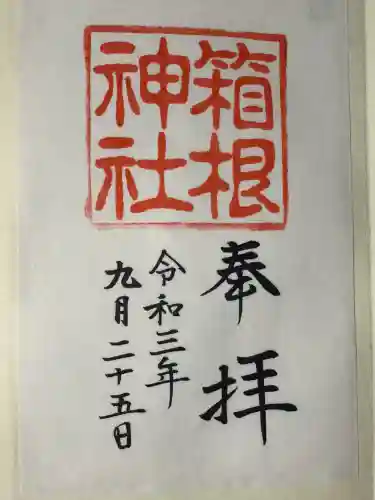 奉拝
箱根
神社
令和三年
九月二十五日